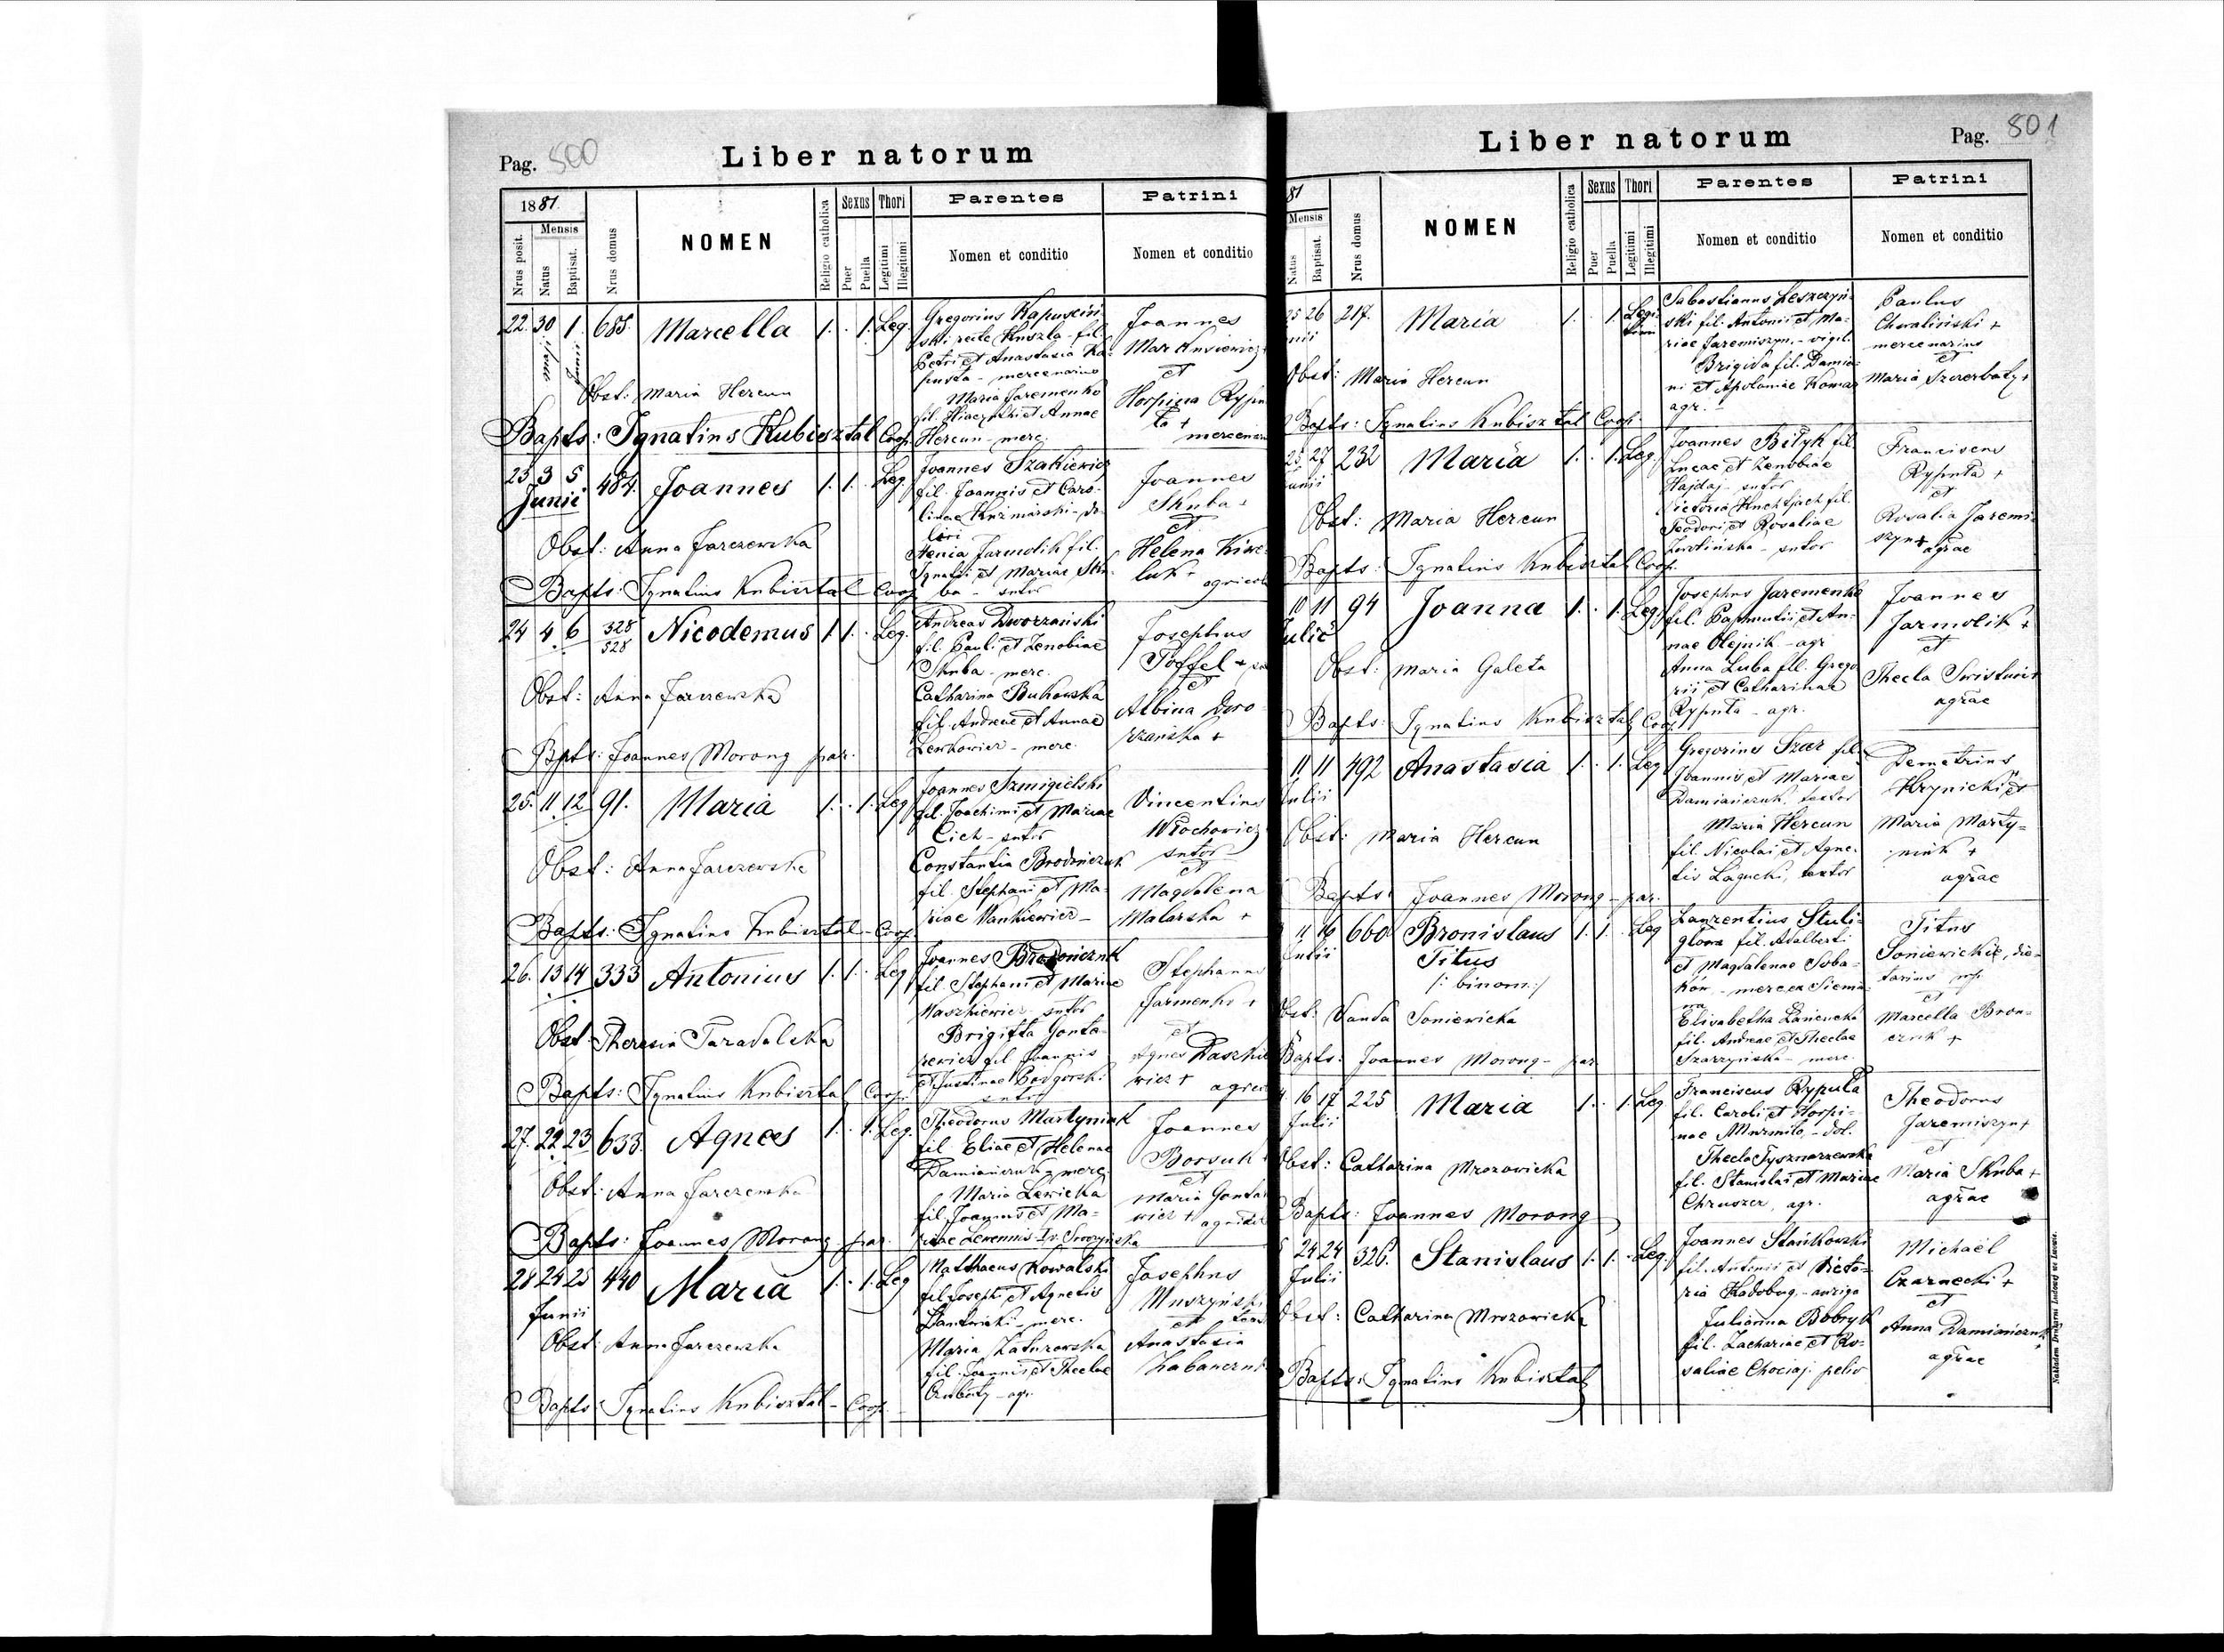 Pag. 500
Liber natorum
1881.
Nrus posit.
Mensis
Natus
Baptisat.
Nrus domus
NOMEN
Religio catholica
Sexus
Puer
Puella
Thori
Legitimi
Illegitimi
Parentes
Nomen et conditio
Patrini
Nomen et conditio
22. 30 1. 685. Marcella 1. . 1. Leg.
Maji Junii
Gregorius Kapuściń-
ski recte Kuszla - fil.
Petri et Anastasia Ka-
pusta - mercenarius
Maria Jaremenko
et Annae
Hercun - merc.
Joannes
et
Hospina
+
Obst: Maria Hercun
Bapts: Ignatius Kubisztal Coop.
23 3 5 484. Joannes 1. 1. . Leg.
Junii
Joannes Szakiewicz
fil. Joannis et Caro-
linae
Jarmolik fil.
Ignatii et Mariae Sku-
ba - sutor
Joannes
Skuba +
et
Helena
agricol
Obst: Anna Jarczewska
Bapts: Ignatius Kubisztal Coop
24 4 6 328
528
Nicodemus 1. 1. . Leg.
Andreas Dworzański
fil. Pauli et Zenobiae
Skuba - merc.
Catharina Bukowska
fil. Andreae et Annae
Lewkowicz - merc.
Josephus
Toffel +
et
Albina Dwo-
rzańska +
Obst: Anna Jarczewska
Bpts: Joannes Morong par.
25. 11 12 91. Maria 1. . 1. Leg
Joannes Szmigielski
fil. Joachimi et Mariae
Cich - sutor
Constantia Brodończuk
fil. Stephani et Ma-
riae
Vincentius
Włochowicz
sutor
et
Magdalena
Malarska +
Obst: Anna Jarczewska
Bapts: Ignatius Kubisztal - Coop.
26. 13 14 333 Antonius 1. 1. . Leg
Joannes Brodończuk
fil. Stephani et Mariae
Waszkiewicz sutor
Brigitta Gonta-
rewicz fil. Joannis
et Justinae Podgorski
sutor
Stephanus
Jarmenko +
et
Agnes
wicz + agric
Obst: Theresia Taradalska
Bapts: Ignatius Kubisztal Coop.
27. 22 23 633. Agnes 1. . 1. Leg.
Theodorus Martyniuk
fil. Eliae et Helenae
Damiańczuk - merc.
Maria Lewicka
fil. Joannis et Ma-
riae
Joannes
Borsuk
et
Maria Gonta
wicz +
Obst: Anna Jarczewska
Bapts: Joannes Morong par.
28 24 25 440 Maria 1. . 1. Leg
Junii
Matthaeus Kowalski
fil. Josephi et Agnetis
merc.
Maria
fil. Joannis et Theclae
agr.
Josephus
Muszyński
et
Anastasia
Obst: Anna Jarczewska
Bapts: Ignatius Kubisztal - Coop.
Liber natorum
Pag. 501
81
Mensis
Natus
Baptisat.
Nrus domus
NOMEN
Religio catholica
Sexus
Puer
Puella
Thori
Legitimi
Illegitimi
Parentes
Nomen et conditio
Patrini
Nomen et conditio
25 26 217. Maria 1. . 1. Legi-
nii
Sabastianus Leszczyń-
ski fil. Antonii et Ma-
riae Jaremiszyn - vigil.
Brigida fil. Damia-
ni et Apoloniae Komar
agr. -
Paulus
Chwaliński +
mercenarius
et
Maria Szczerbaty +
Obst: Maria Hercun
Bapts: Ignatius Kubisztal Coop.
25 27 232 Maria 1. . 1. Leg.
unii
Joannes Biłyk fil.
Lucae et Zenobiae
Hajdaj - sutor
Victoria fil.
Teodori et Rosaliae
sutor
Franciscus
Ryputa +
et
Rosalia Jaremi-
szyn + agrae
Obst: Maria Hercun
Bapts: Ignatius Kubisztal Coop.
10 11 94 Joanna 1. . 1. Leg.
Julii
Josephus Jaremenko
fil. et An-
nae Olejnik - agr
Anna Luba fil. Grego-
rii et Catharinae
Ryputa - agr.
Joannes
Jarmolik +
et
Thecla
agrae
Obst: Maria Galeta
Bapts: Ignatius Kubisztal Coop.
11 11 492 Anastasia 1. . 1. Leg
Julii
Gregorius fil.
Joannis et Mariae
Damiańczuk textor
Maria Hercun
fil. Nicolai et Agne-
tis textor
Demetrius
Hrynicki et
Maria Marty-
niuk +
agrae
Obst: Maria Hercun
Bapts: Joannes Morong - par.
11 16 660 Bronislaus 1. 1. . Leg
Julii
Titus
/: binom :/
Laurentius Stuli-
głowa fil. Adalberti
et Magdalenae Soba-
merc.
Elisabetha
fil. Andreae et Theclae
Szarzyńska - merc.
Titus
Soniewicki, die-
tarius mp.
et
Marcella Bron-
czuk +
Obst: Vanda Soniewicka
Bapts: Joannes Morong - par
16 17 225 Maria 1. . 1. Leg
Julii
Franciscus Ryputa
fil. Caroli et Horpi-
nae - dol.
Thecla
fil. Stanislai et Mariae
Chruszcz, agr.
Theodorus
Jaremiszyn +
et
Maria Skuba +
agrae
Obst: Catharina Mrozowicka
Bapts: Joannes Morong
24 24 326. Stanislaus 1. 1. . Leg.
Julii
Joannes Stańkowski
fil. Antonii et Victo-
ria - auriga
Julianna Bobryk
fil. Zachariae et Ro-
saliae Chociaj
Michaël
Czarnecki +
et
Anna Damiańczuk
agrae
Obst: Catharina Mrozowicka
Bapts: Ignatius Kubisztal
Nakładem Drukarni Ludowej we Lwowie.